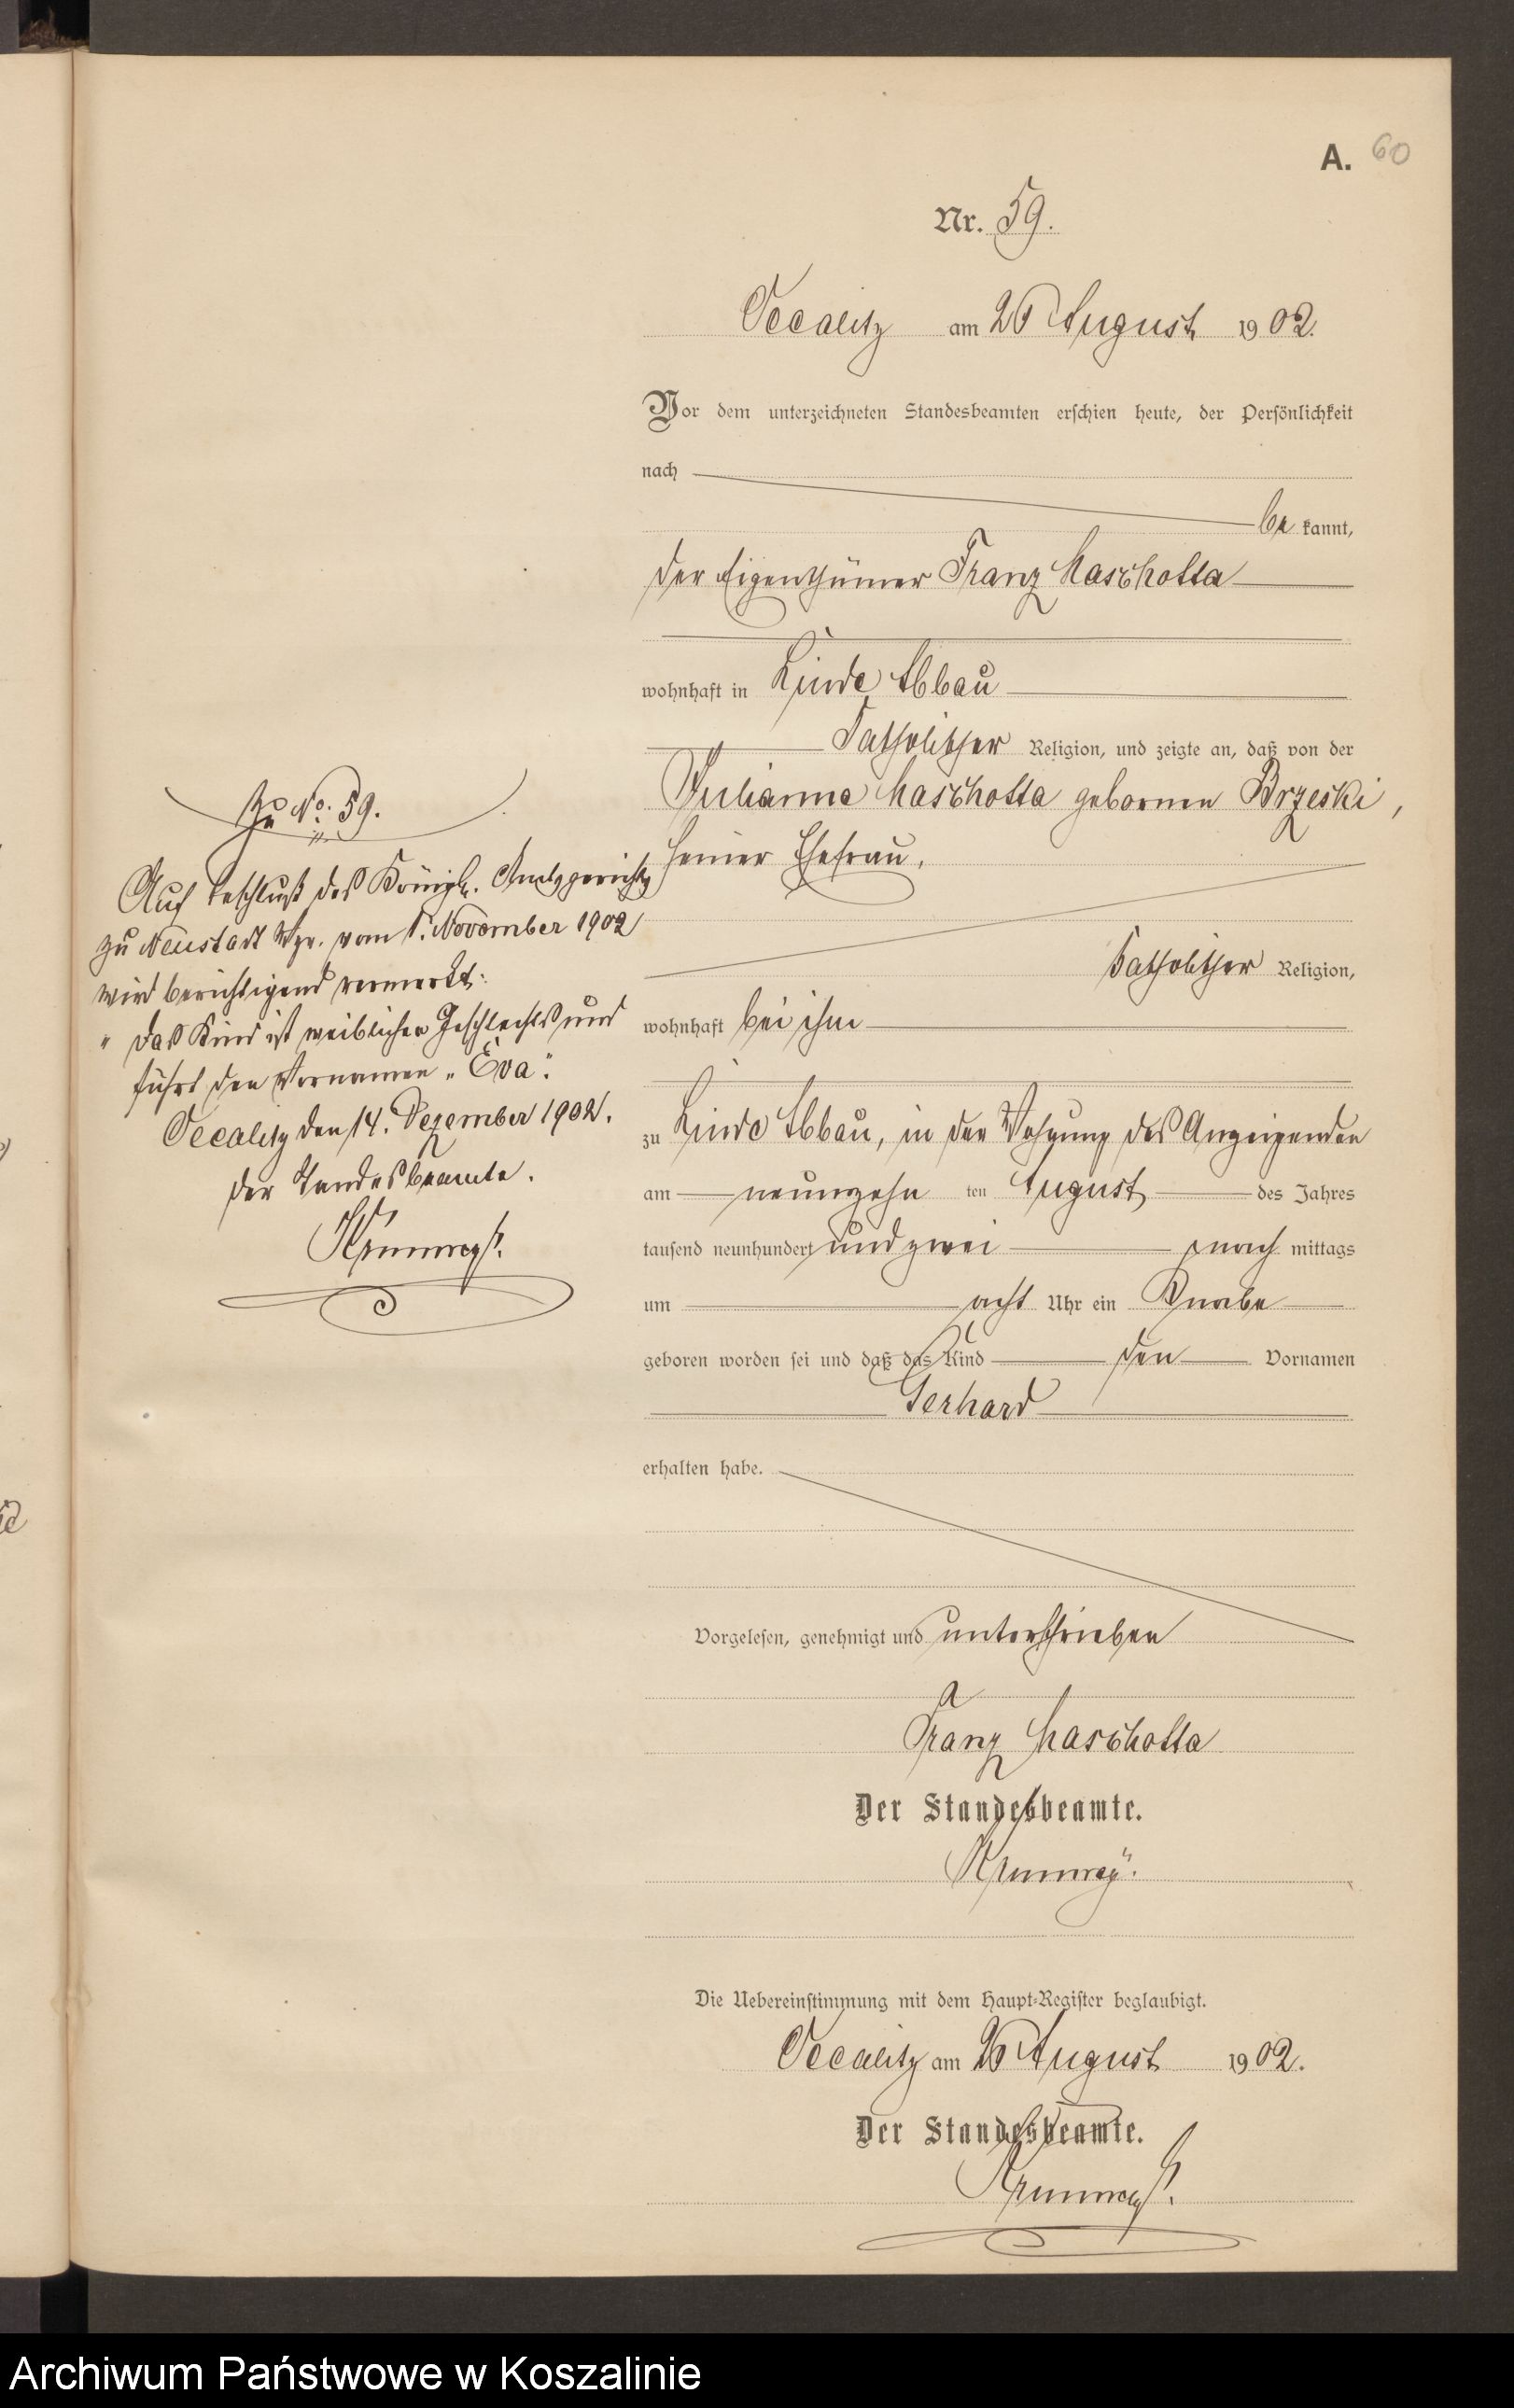 A. 60
Nr. 59.
Occalitz am August 1902.
Vor dem unterzeichneten Standesbeamten erschien heute, der Persönlichkeit
nach
be kannt,
der Eigenthümer Franz Maschotta
wohnhaft in Linde Abbau
katholischer Religion, und zeigte an, daß von der
Julianna Maschotta gebornen Brzeski,
seiner Ehefrau,
katholischer Religion,
wohnhaft bei ihm
zu Linde Abbau, in der Wohnung des Anzeigenden
am neunzehn ten August des Jahres
tausend neunhundert und zwei nach mittags
um acht Uhr ein Knabe
geboren worden sei und daß das Kind den Vornamen
Gerhard
erhalten habe.
Vorgelesen, genehmigt und unterschrieben
Franz Maschotta
Der Standesbeamte.
Die Uebereinstimmung mit dem Haupt-Register beglaubigt.
Occalitz am August 1902.
Der Standesbeamte.
Zu No. 59.
Auf Beschluß des Königl. Amtsgerichts
zu Neustadt Wpr. vom November 1902
wird berichtigend vermerkt:
"das Kind ist weiblichen Geschlechts und
führt den Vornamen "Eva".
Occalitz den 14. Dezember 1902.
Der Standesbeamte.
Archiwum Państwowe w Koszalinie